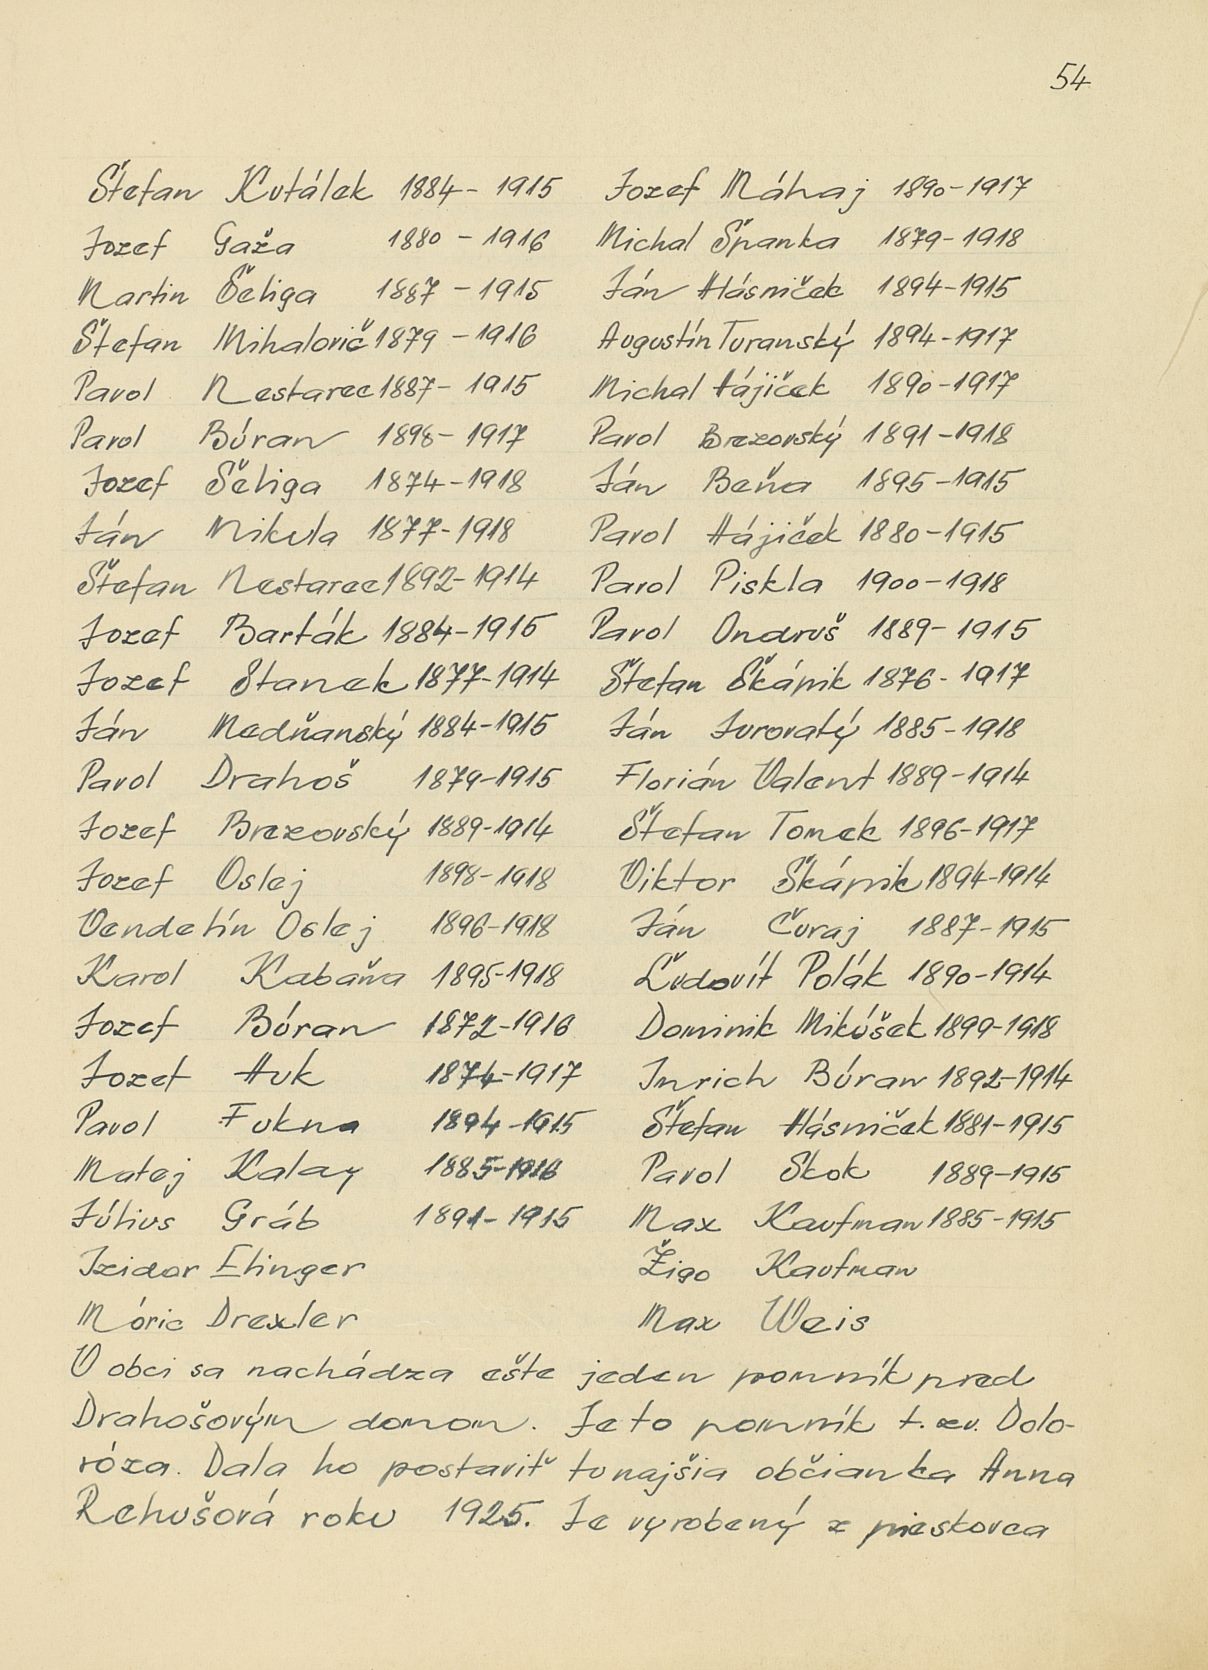 54
Štefan Kutálek 1884 - 1915 Jozef Máhaj 1890 - 1917
Jozef Gaža 1880 - 1916 Michal Španka 1879 - 1918
Martin Šeliga 1887 - 1915 Ján Hásniček 1894-1915
Štefan Mihalovič 1879 - 1916 Augustín Turanský 1894-1917
Pavol Nestarec 1887 - 1915 Michal Hájiček 1890-1917
Pavol Búran 1898 - 1917 Pavol Brezovský 1891-1918
Jozef Šeliga 1874-1918 Ján Beňa 1895-1915
Ján Mikula 1877-1918 Pavol Hájiček 1880-1915
Štefan Nestarec 1892-1914 Pavol Piskla 1900-1918
Jozef Barták 1884-1915 Pavol Ondruš 1889-1915
Jozef Stanek 1877-1914 Štefan Škápik 1876-1917
Ján Medňanský 1884-1915 Ján Jurovatý 1885-1918
Pavol Drahoš 1879-1915 Florián Valent 1889-1914
Jozef Brezovský 1889-1914 Štefan Tomek 1896-1917
Jozef Oslej 1898-1918 Viktor Škápik 1894-1914
Vendelín Oslej 1896-1918 Ján Čuraj 1887-1915
Karol Kabaňa 1895-1918 Ľudovít Polák 1890-1914
Jozef Búran 1872-1916 Dominik Mikúšek 1899-1918
Jozef Huk 1874-1917 Inrich Búran 1892-1914
Pavol Fukna 1894-1915 Štefan Hásniček 1881-1915
Matej Kalay 1885-1916 Pavol Skok 1889-1915
Július Gráb 1891-1915 Max Kaufman 1885-1915
Izidor Elinger Žigo Kaufman
Móric Drexler Max Weis
V obci sa nachádza ešte jeden pomník pred
Drahošovým domom. Je to pomník t. zv. Dolo-
róza. Dala ho postaviť tunajšia občianka Anna
Rehušová roku 1925. Je vyrobený z pieskovca